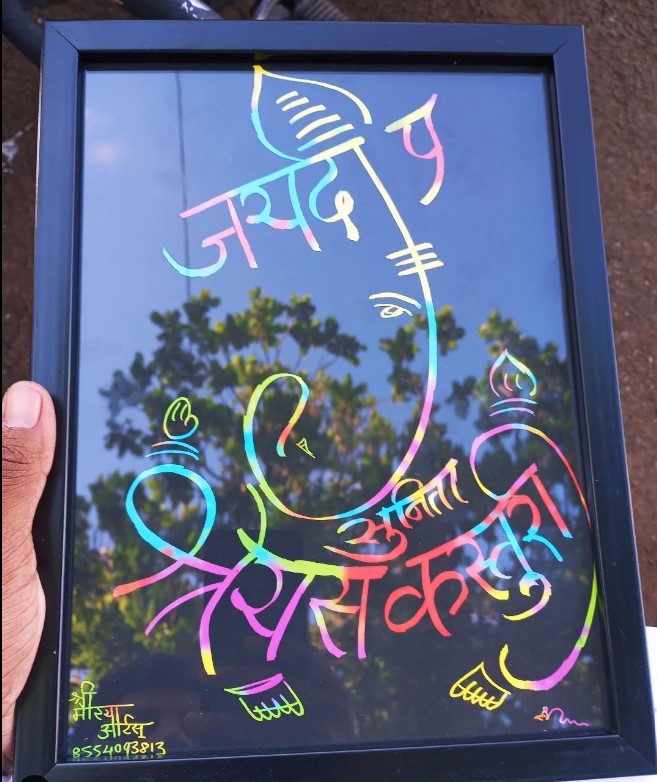 जयदीप
सुनिता
श्रेयस कस्तुरी
श्री
मोरया
आर्टस्
8554093813